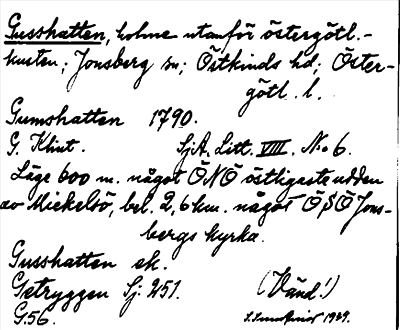 Gusshatten, holme utanför östergötl.-
kusten; Jonsberg sn; Östkinds hd; Öster-
götl. l.
Gumshatten 1790.
G. Klint. SjA. Litt. VIII. No 6.
Läge 600 m. något ÖNÖ östligaste udden
av Mickelsö, bel. 2,6 km. något ÖSÖ Jons-
bergs kyrka.
Gusshatten ek.
Getryggen Sj. 251. (Vänd!)
G:56. 1929.